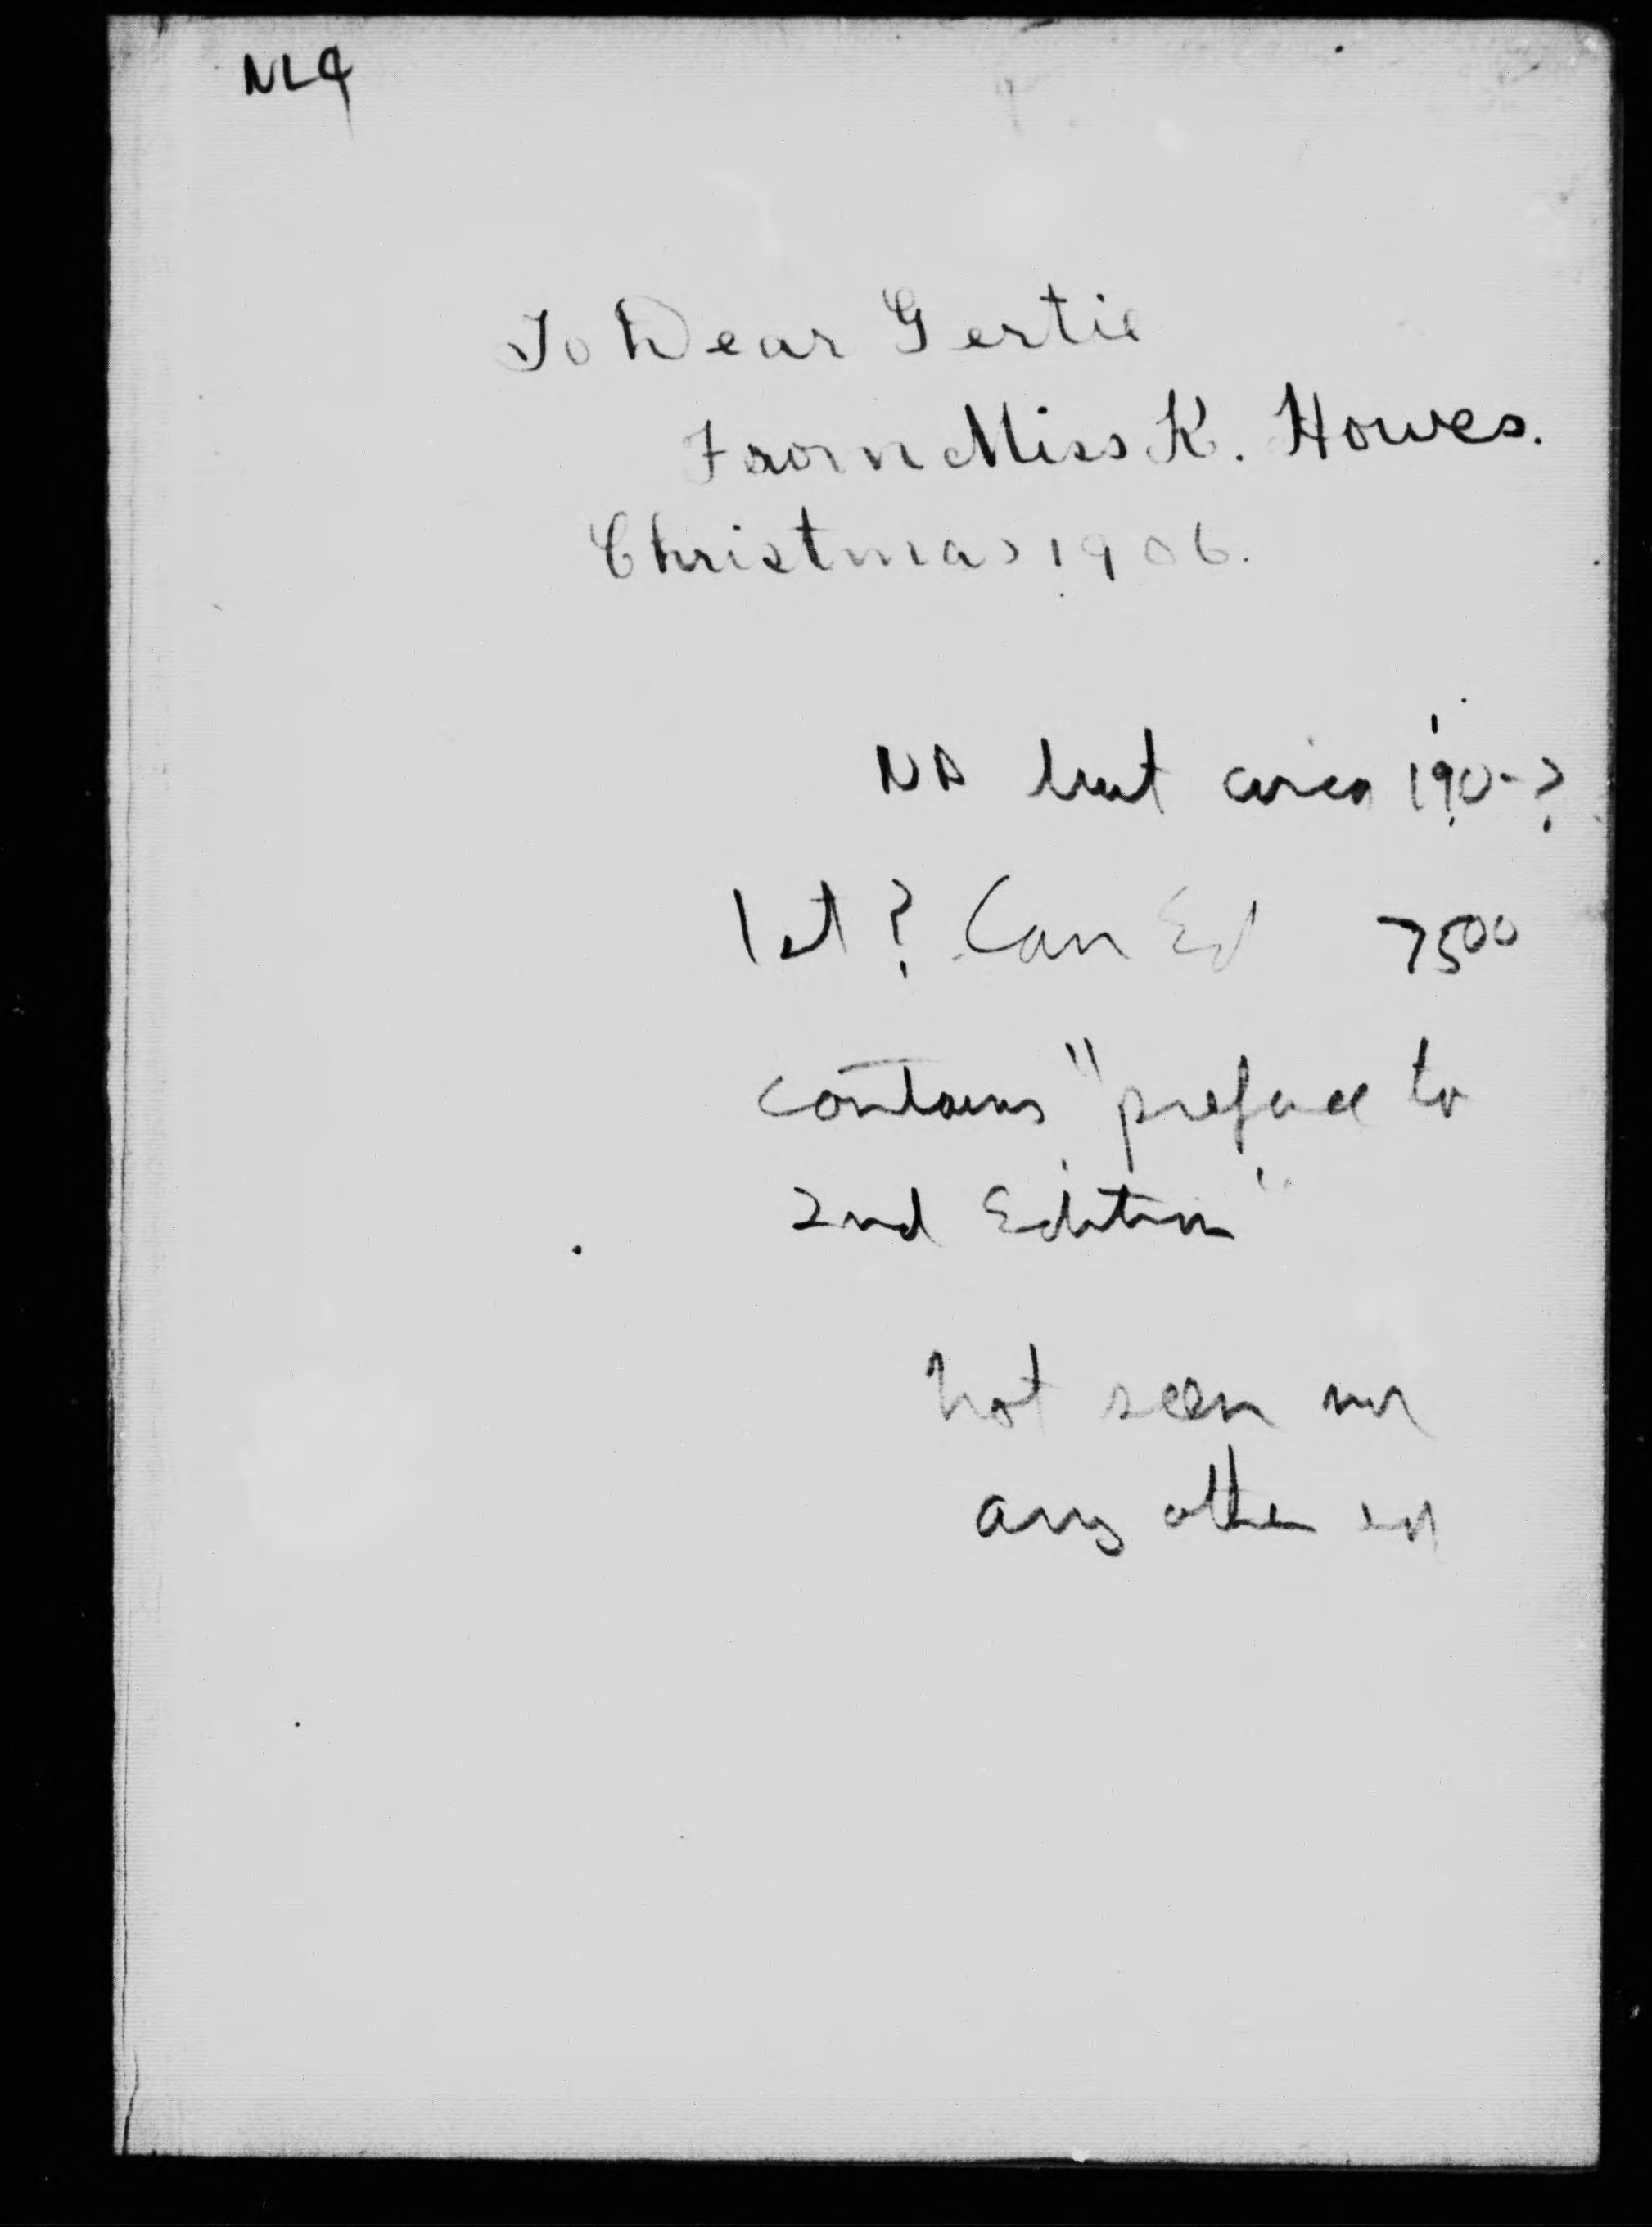 NL9
To Dear Gertie
From Miss K. Howes.
Christmas 1906.
ND but circa 190-?
1st? Can Ed 7500
contains "preface to
2nd Edition"
not seen nor
any other ed